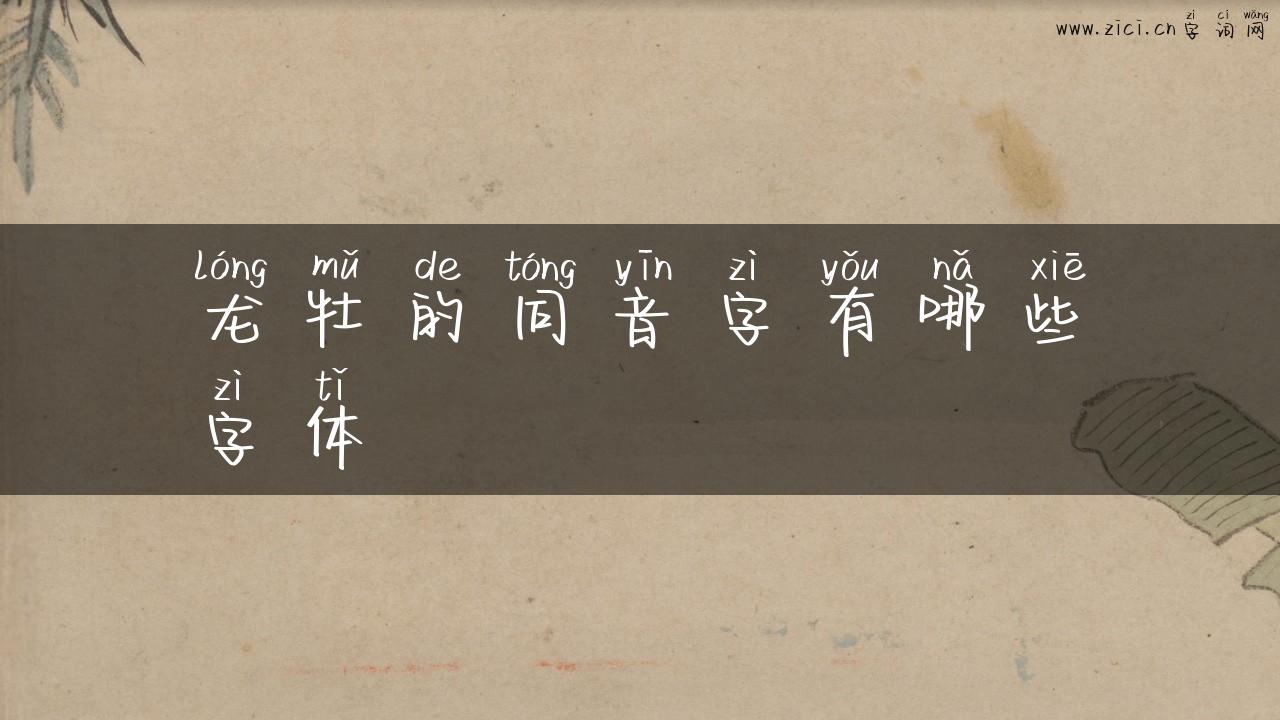 zì cí wǎng
www.zici.cn 字词网
lóng mǔ de tóng yīn zì yǒu nǎ xiē
龙牡的同音字有哪些
zì tǐ
字体